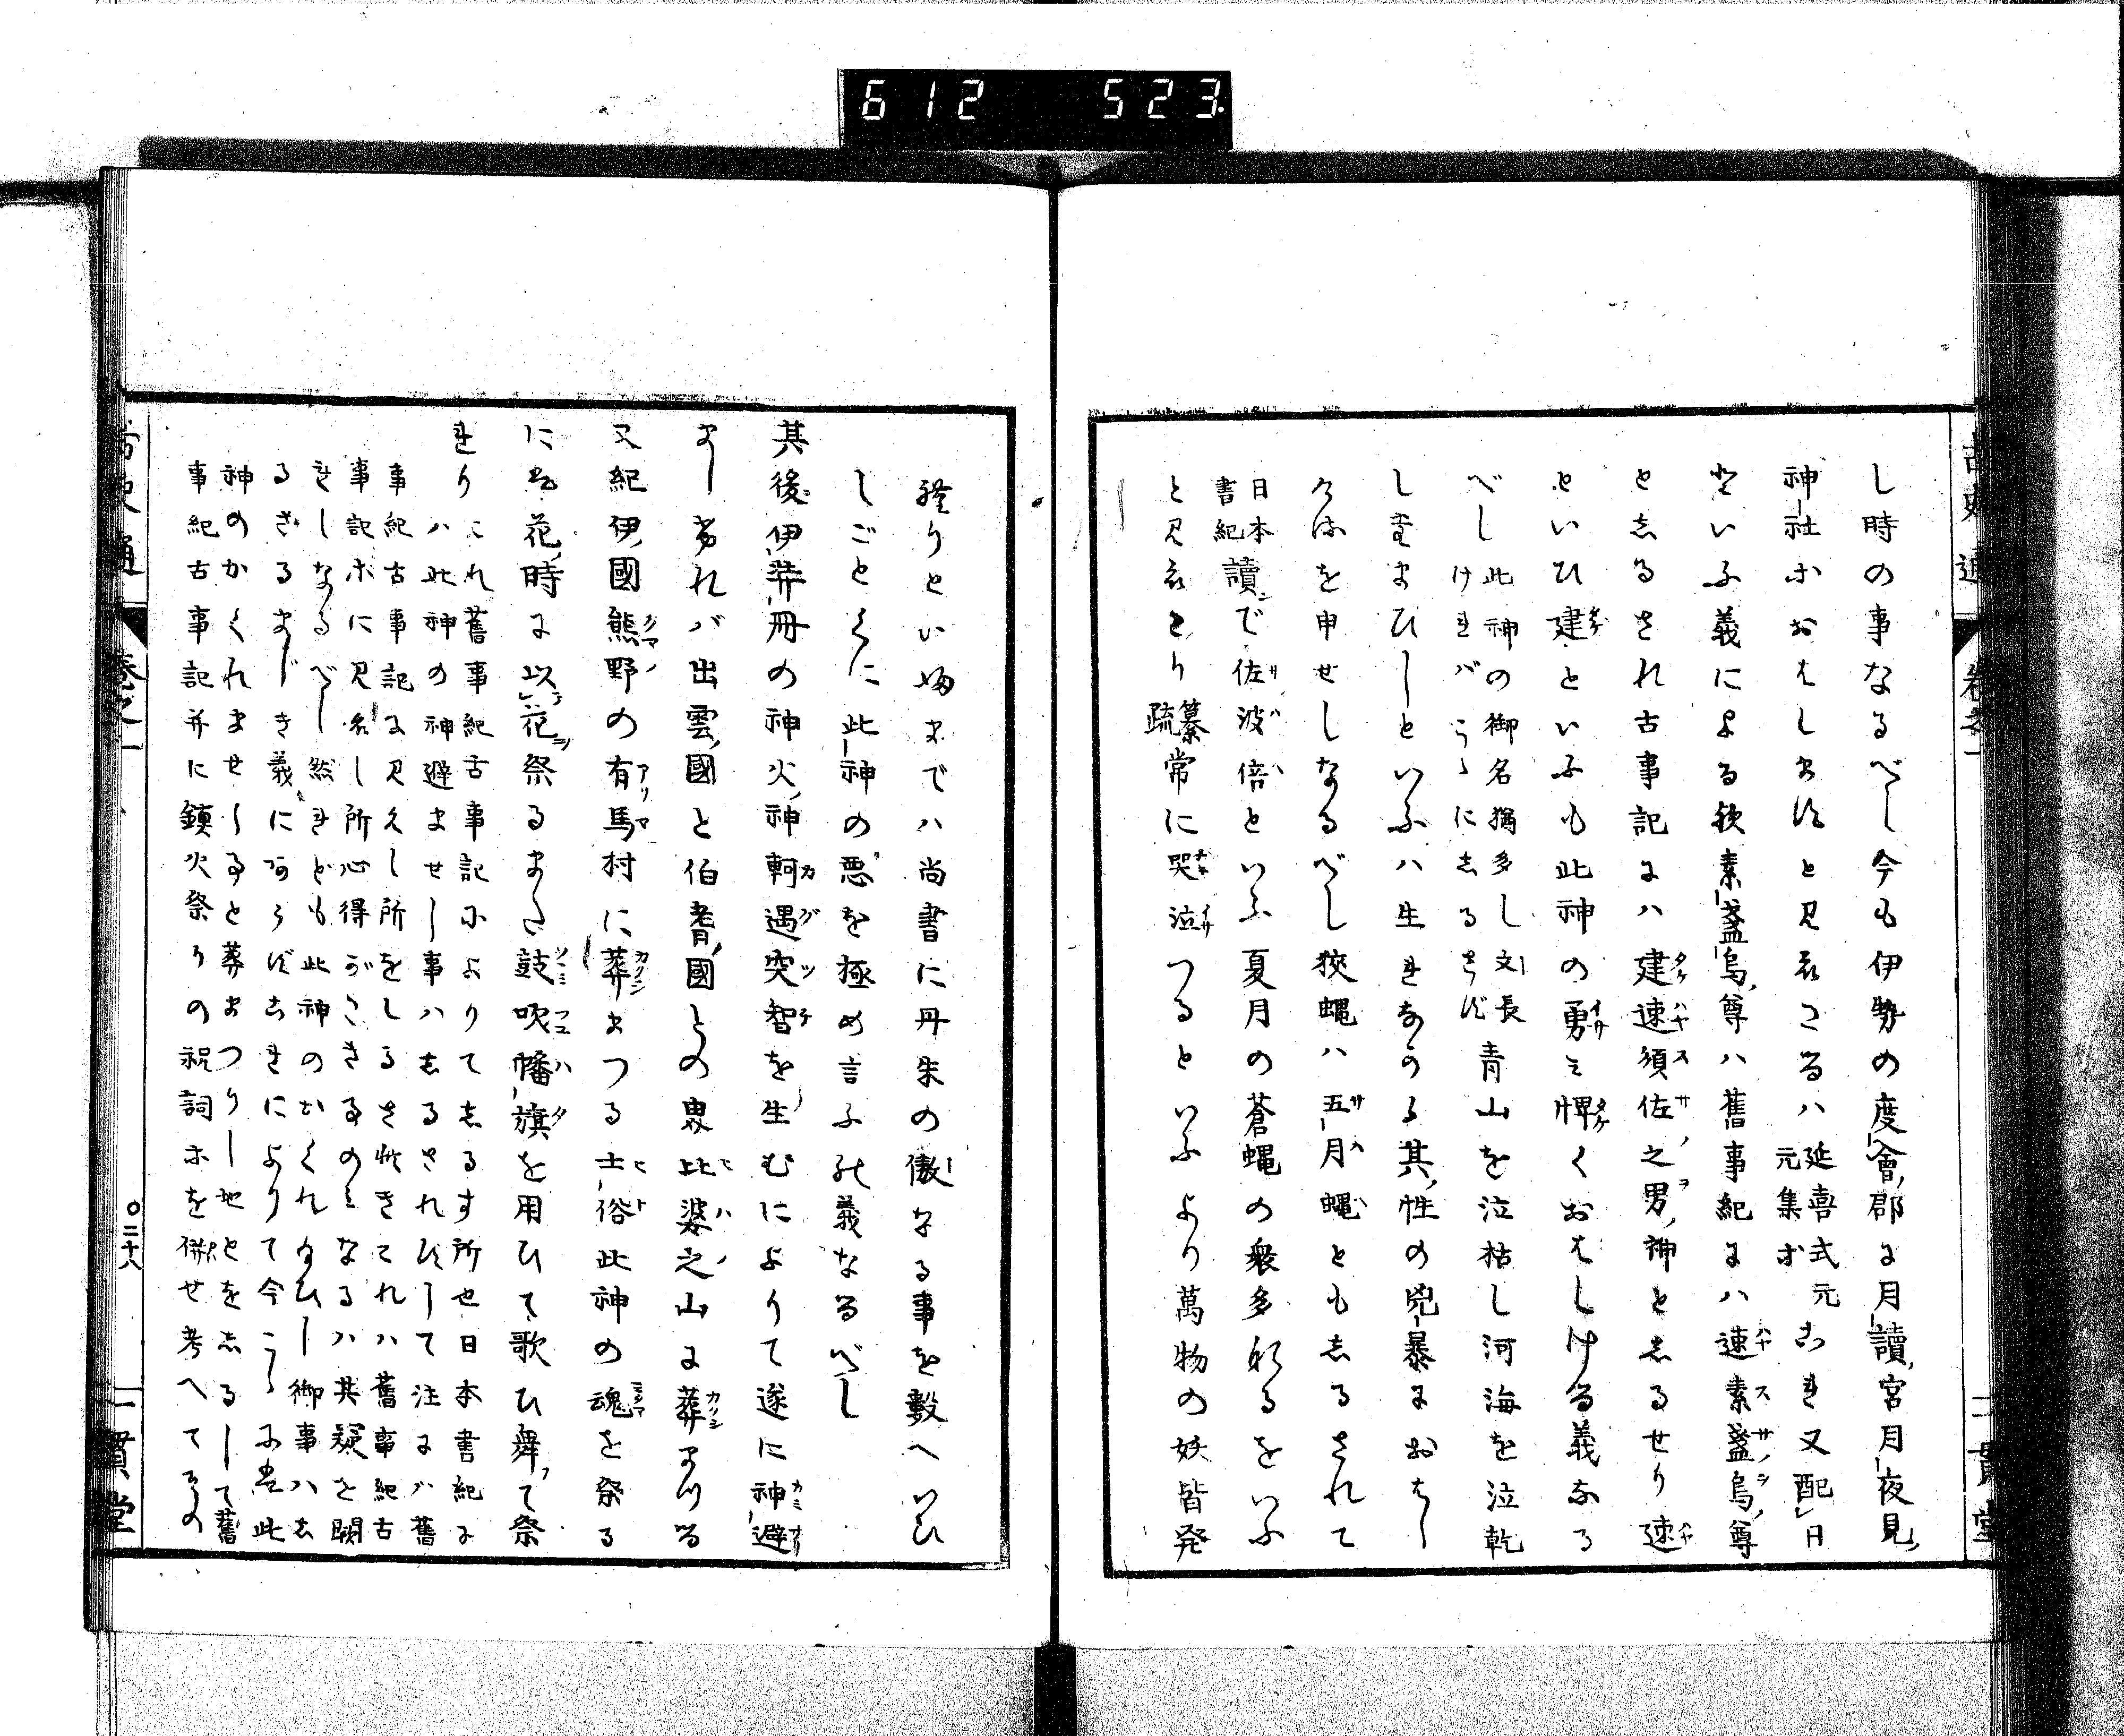 612 523.
し時の事なるべし今も伊勢の度會郡に月讀宮月夜見
神社ホおはしますと見えさるハ延喜式元元集ホ あき又配日
といふ義による歟素盞烏尊ハ舊事紀にハ速素盞烏尊
としるされ古事記にハ建速須佐之男神としるせり速
といひ建といふも此神の勇ミ悍くおはしける義なる
べし此神の御名猶多し文長けれバこゝにしるさず青山を泣枯し河海を泣乾
しまひしといふハ生れある其性の兇暴におはし
を申せしなるべし狹蠅ハ五月蠅ともしるされて
日本書紀讀で佐波倍といふ夏月の蒼蠅の衆多なるをいふ
と見えたり纂疏常に哭泣つるといふより萬物の妖皆発
發りといふまでハ尚書に丹朱の傲なる事を數へいひ
しごとくに此神の惡を極め言ふの義なるべし
其後伊弉冊の神火神軻遇突智を生むによりて遂に神避
ましければ出雲國と伯耆國との界比婆之山に葬まつる
又紀伊國熊野の有馬村に葬まつる土俗此神の魂を祭る
に花時に以花祭るまた鼓吹幡旗を用ひて歌ひ舞て祭
れりこれ舊事紀古事記によりてしるす所也日本書紀に
ハ此神の神避ませし事ハしるされずして注にバ舊
事紀古事記に見えし所をしるされきこれハ舊事紀古
事記ホに見えし所心得がたき事のミなるハ其疑を闕
れしなるべし然れども此神のかくれ給ひし御事ハし
るさざるまじき義にあらずこれによりて今こゝに此
神のかくれませし事と葬まつりし地とをしるして舊
事紀古事記并に鎮火祭りの祝詞ホを併せ考へてその
古史通 卷之一
〇二十八
一貫堂
古史通 卷之一
一貫堂